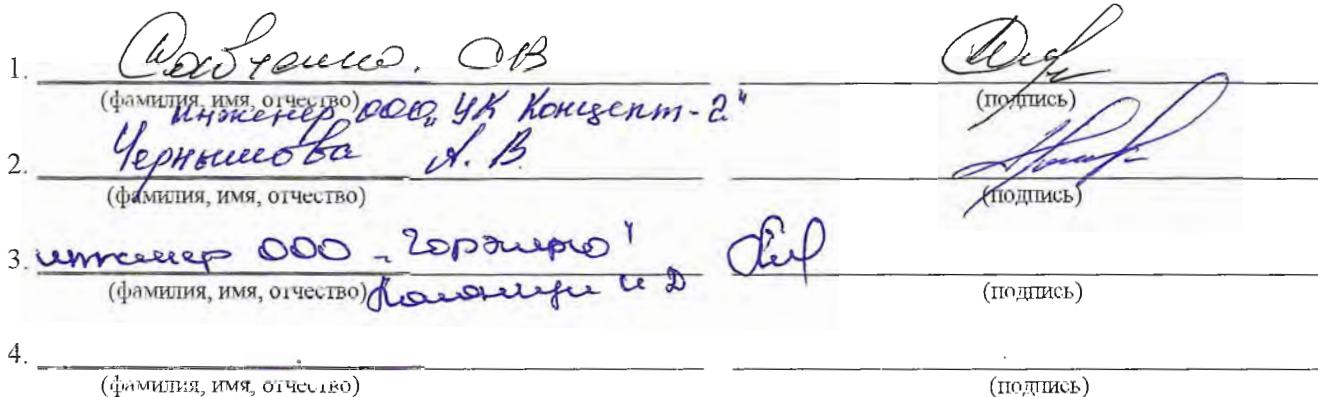 1. Савченко. ОВ
(фамилия, имя, отчество) (подпись)
инженер ООО „УК Концепт-2"
2. Чернышова А. В.
(фамилия, имя, отчество) (подпись)
3. инженер ООО - Горэнерго"
(фамилия, имя, отчество) И Д (подпись)
4.
(фамилия, имя, отчество) (подпись)